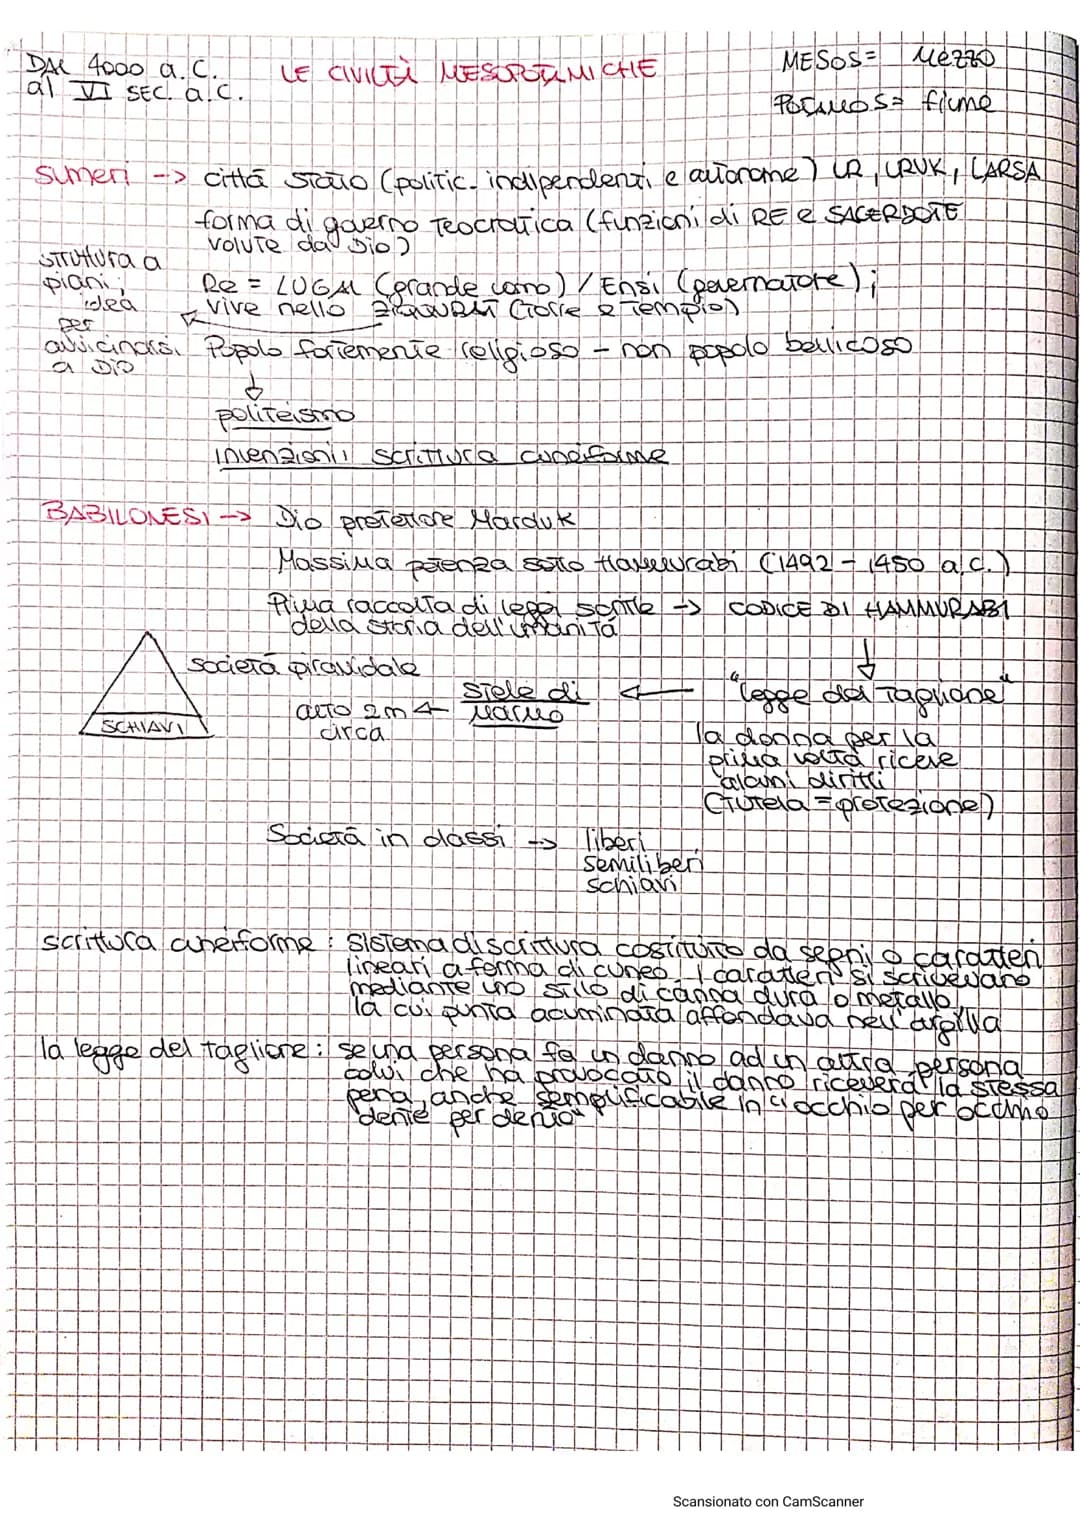 DAL 4000 a.C.
al VI SEC. a.C.
LE CIVILTÀ MESOPOTAMICHE
MESOS= Mezzo
POTAMOS= fiume
Sumeri -> città stato (politic. indipendenti e autonome) UR, URUK, LARSA
forma di governo Teocratica (funzioni di RE e SACERDOTE
volute da Dio)
struttura a
piani,
idea
per
avvicinarsi
a Dio
Re = LUGAL (grande uomo) / Ensi (governatore);
vive nello ZIGGURAT (Torre e Tempio)
Popolo fortemente religioso - non popolo bellicoso
politeismo
invenzioni: scrittura cuneiforme
BABILONESI -> Dio protettore Marduk
Massima potenza sotto Hammurabi (1492 - 1450 a.C.)
Prima raccolta di leggi scritte -> CODICE DI HAMMURABI
della storia dell'umanità
società piramidale
SCHIAVI
"legge del Taglione"
Stele di
Marmo
alto 2m
circa
la donna per la
prima volta riceve
alcuni diritti
(Tutela = protezione)
Società in classi -> liberi
semiliberi
schiavi
scrittura cuneiforme : sistema di scrittura costituito da segni o caratteri
lineari a forma di cuneo. I caratteri si scrivevano
mediante uno stilo di canna dura o metallo,
la cui punta acuminata affondava nell'argilla
la legge del taglione : se una persona fa un danno ad un altra persona
colui che ha provocato il danno riceverà la stessa
pena, anche semplificabile in "occhio per occhio
dente per dente"
Scansionato con CamScanner